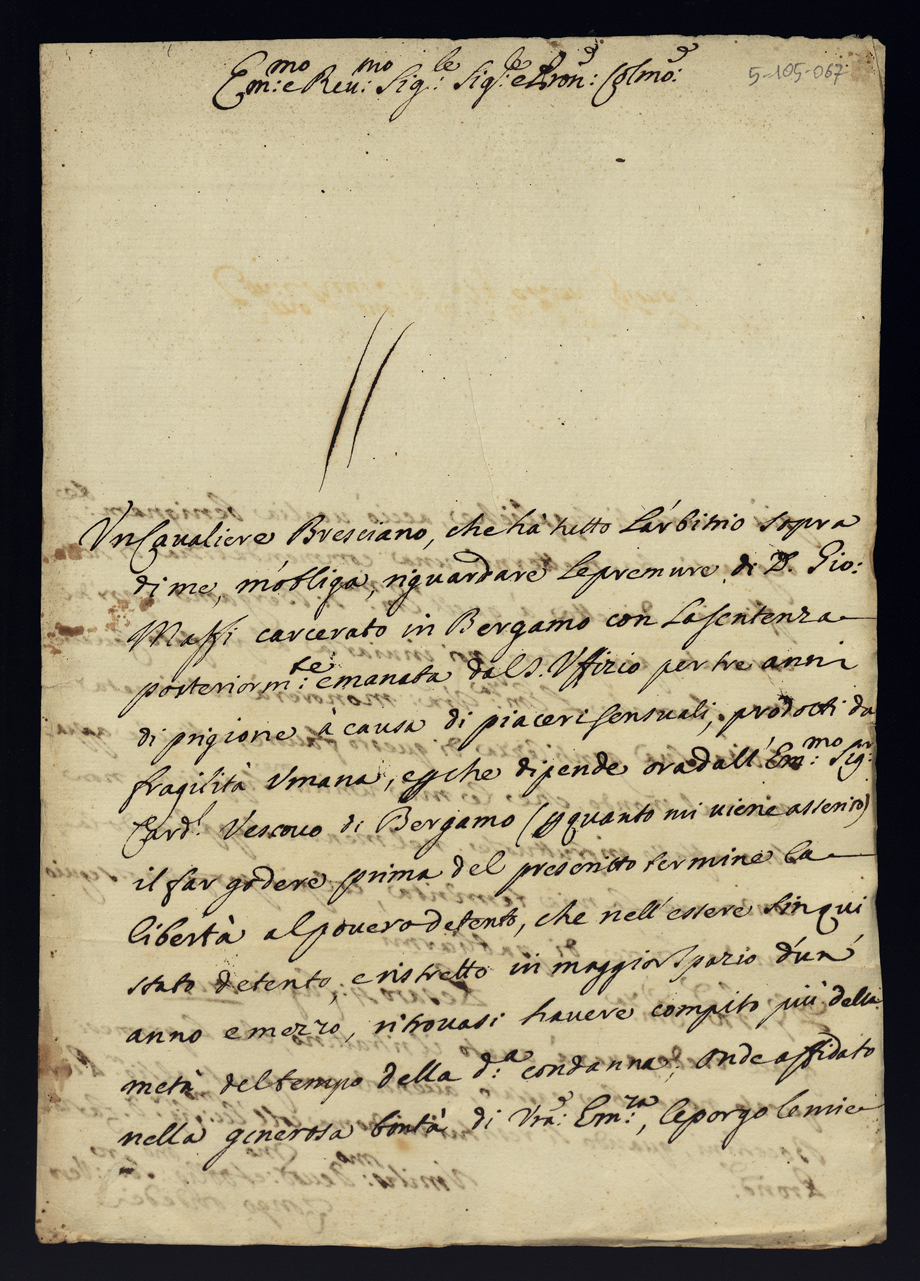 Em:mo e Reu:mo Sig:le Sig:le e Pron:d Colmo:d
5-105-067
Vn Caualiere Bresciano, che hà tutto L'arbitrio sopra
di me, m'obliga, riguardare le premure di D. Gio:
Maffi carcerato in Bergamo con La sentenza
posteriorm:te emanata dal S. Vffizio per tre anni
di prigione à causa di piaceri sensuali, prodotti da
fragilità Vmana, e che dipende ora dall' Em:mo Sig:r
Card:l Vescouo di Bergamo (p quanto mi uiene asserito)
il far godere prima del prescritto termine la
libertà al pouero detento, che nell' essere sin qui
stato detento, e ristretto in maggior spazio d'un'
anno e mezzo, ritrouasi hauere compito più della
metà del tempo della d:a condanna; Onde affidato
nella generosa bontà di Vra: Em:za, le porgo le mie